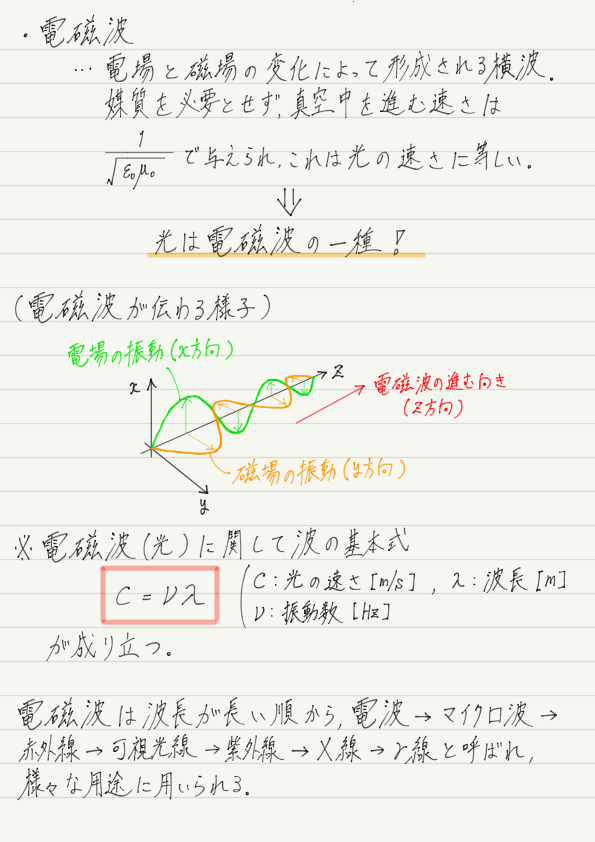 ・電磁波
… 電場と磁場の変化によって形成される横波.
媒質を必要とせず,真空中を進む速さは
1/√ε₀μ₀ で与えられ,これは光の速さに等しい。
⇓
光は電磁波の一種!
(電磁波が伝わる様子)
電場の振動(x方向)
x
z
電磁波の進む向き
(z方向)
磁場の振動(y方向)
y
※電磁波(光)に関して波の基本式
C = νλ
(C:光の速さ[m/s] , λ:波長[m]
ν:振動数[Hz]
が成り立つ。
電磁波は波長が長い順から,電波→マイクロ波→
赤外線→可視光線→紫外線→X線→γ線と呼ばれ,
様々な用途に用いられる。